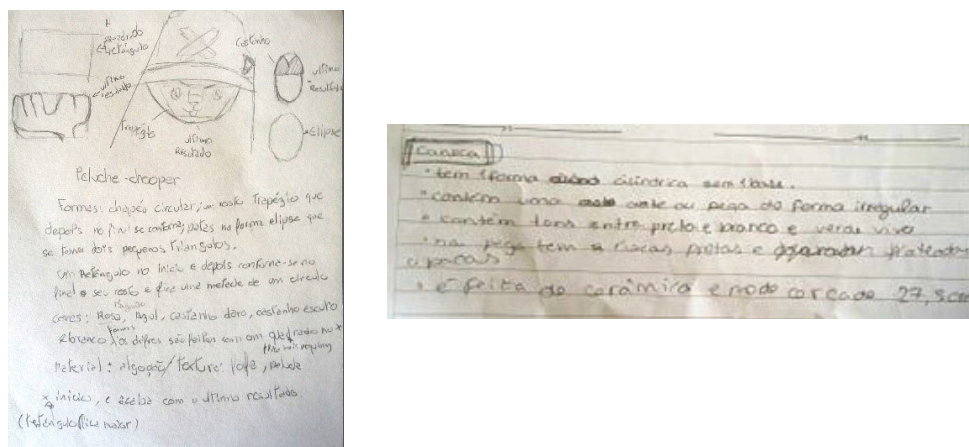 retângulo
ultimo
resultado
Castanho
ultimo
Resultado
Elipse
Trapézio
ultimo
Resultado
Peluche - chooper
Formas: chapéu circular, um rosto Trapézio que
depois no final se contorne, patas na forma elipse que
se forma dois pequenos triangulos.
um Retângulo no início e depois contorna-se no
final o seu rosto e fica uma metade de um circulo
Cores: Rosa, Azul, castanho claro, castanho escuro
são feitos com um quadrado no *
Material: algoção/textura: fofa, peluche
* início, e acaba com o ultimo resultado
(retângulo fica maior)
Caneca
• tem 1 forma cilíndrica sem 1 base.
• contém uma ou pega de forma irregular
• contém tons entre preto e branco e verde vivo
• na pega tem riscas pretas e prateadas
• é feita de cerâmica e mede cerca de 27,5 cm